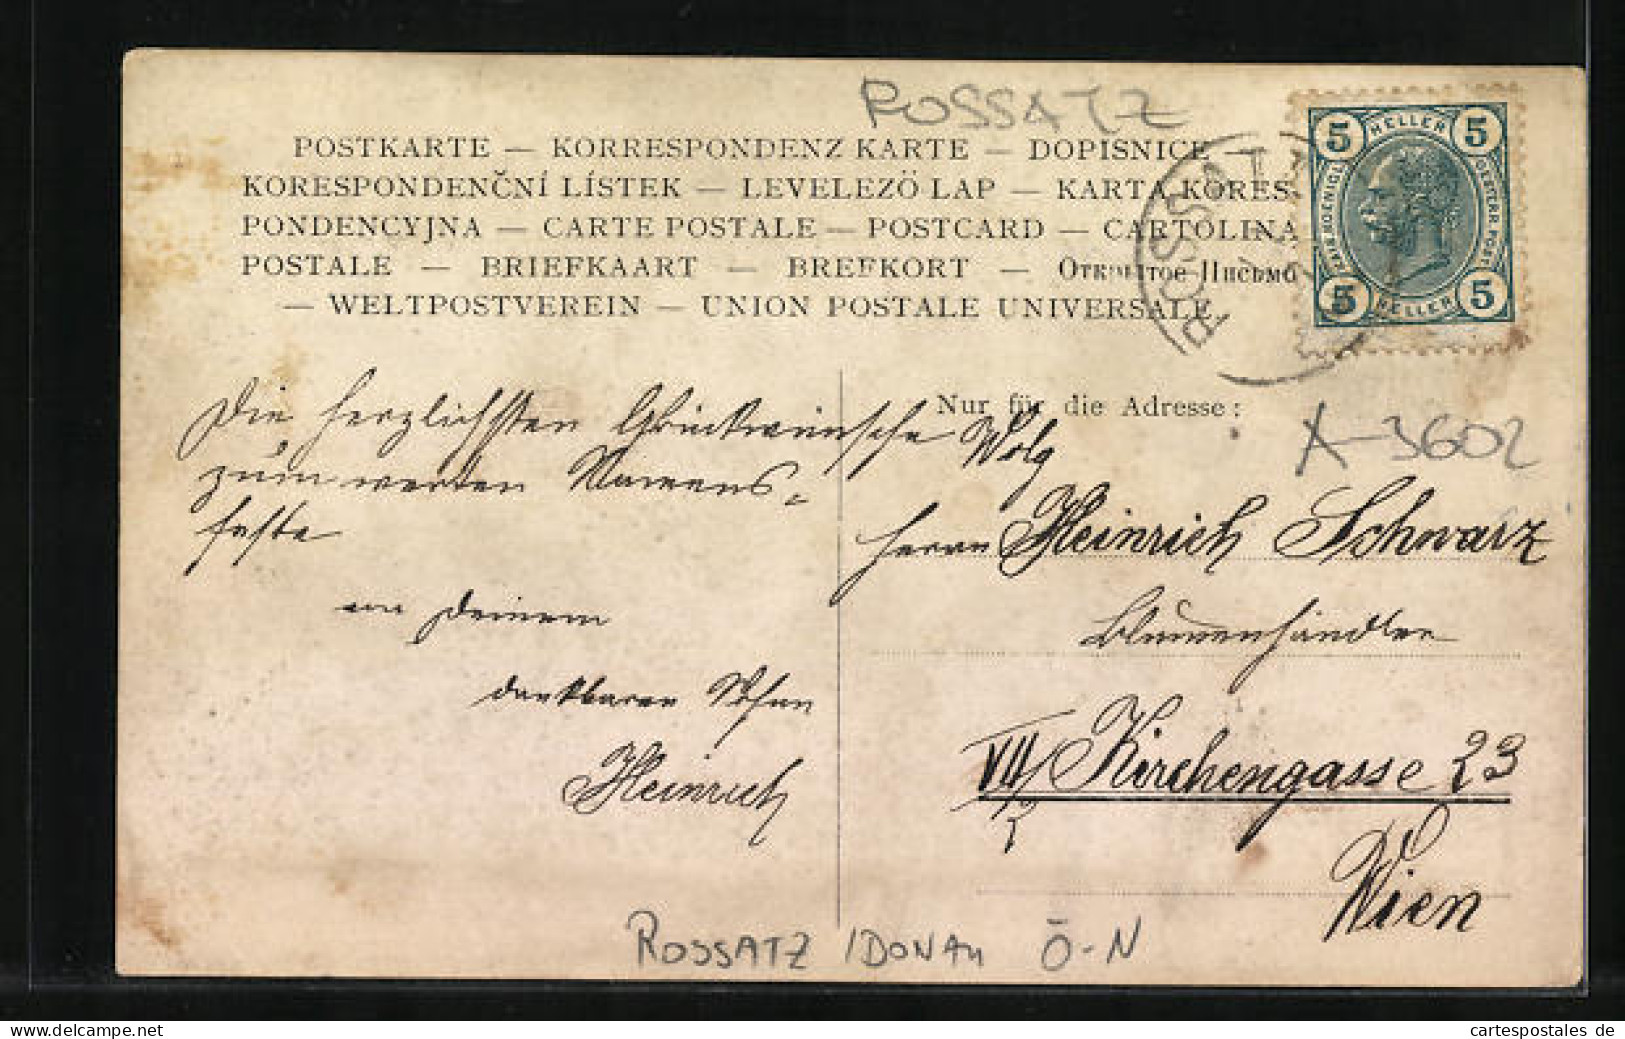 ROSSATZ
POSTKARTE — KORRESPONDENZ KARTE — DOPISNICE —
KORESPONDENČNÍ LÍSTEK — LEVELEZÖ LAP — KARTA KORES-
PONDENCYJNA — CARTE POSTALE — POSTCARD — CARTOLINA
POSTALE — BRIEFKAART — BREFKORT — Открытое Письмо
— WELTPOSTVEREIN — UNION POSTALE UNIVERSALE.
5 HELLER 5
KAIS. KOENIGL. OESTERR. POST
5 HELLER 5
ROSSAT
Die herzlichsten Glückwünsche
zum werten Namens-
feste
von Deinem
dankbaren
Heinrich
Nur für die Adresse:
A-3602
Wolg
Herrn Heinrich Schwarz
Blumenhändler
VII/ Kirchengasse 23
Wien
ROSSATZ /DONAU Ö-N
cartespostales de